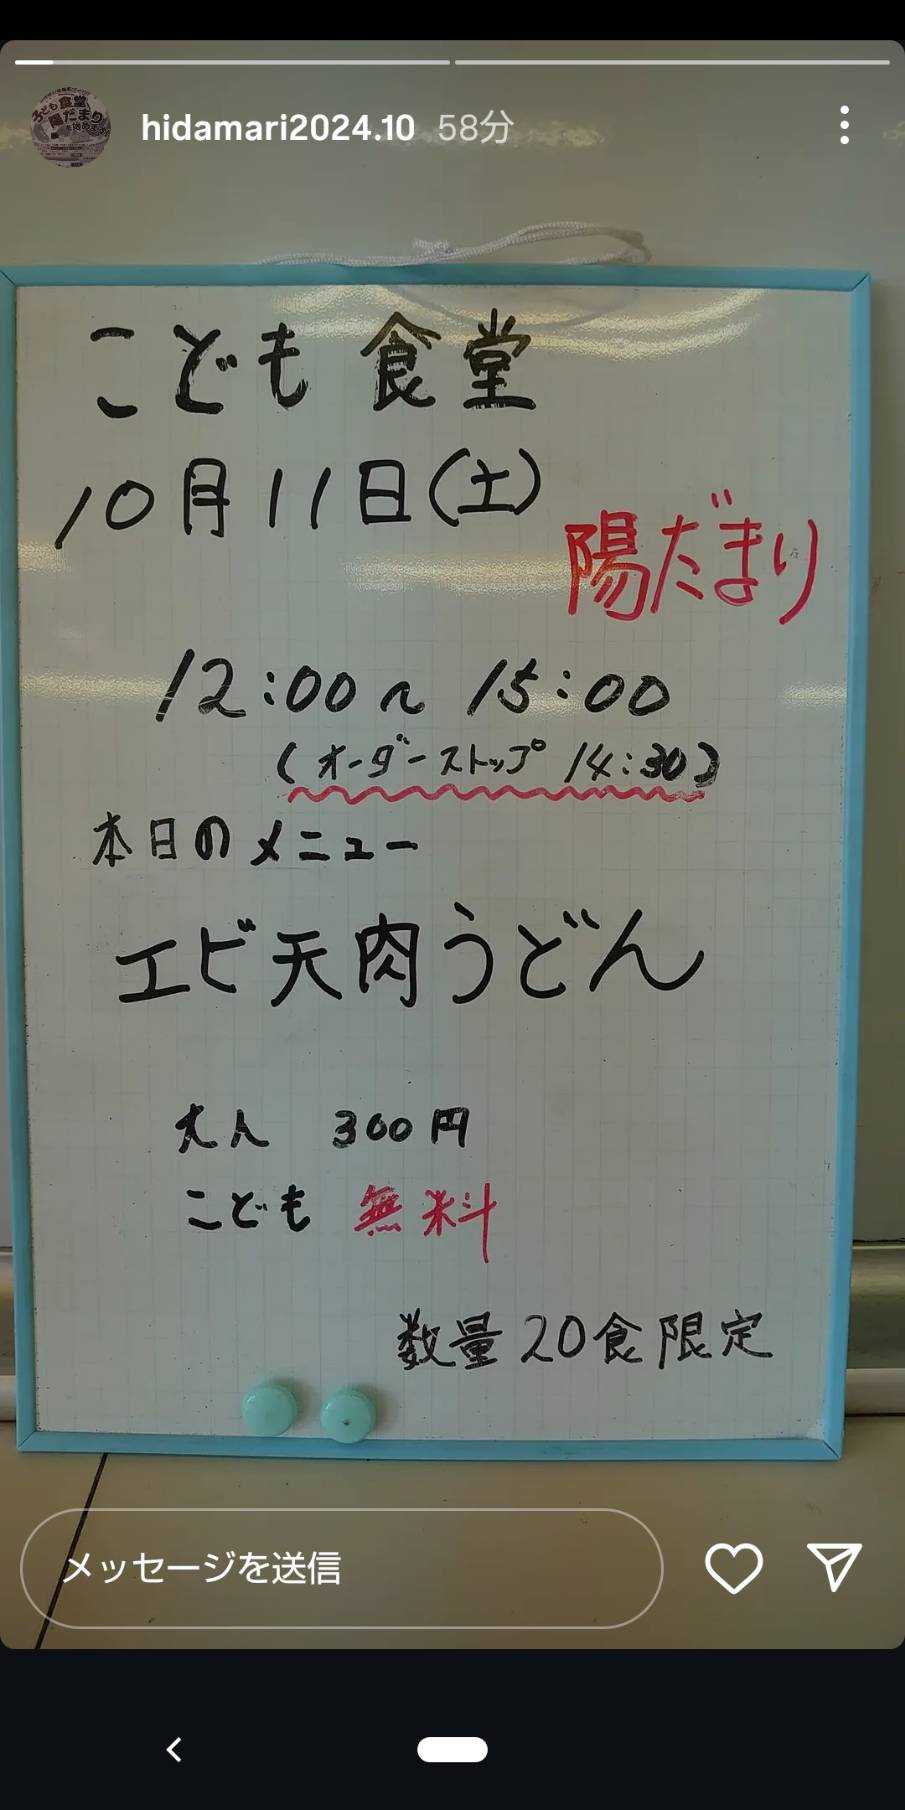 hidamari2024.10 58分
こども食堂
10月11日(土)
陽だまり
12:00〜15:00
(オーダーストップ 14:30)
本日のメニュー
エビ天肉うどん
大人 300円
こども 無料
数量20食限定
メッセージを送信